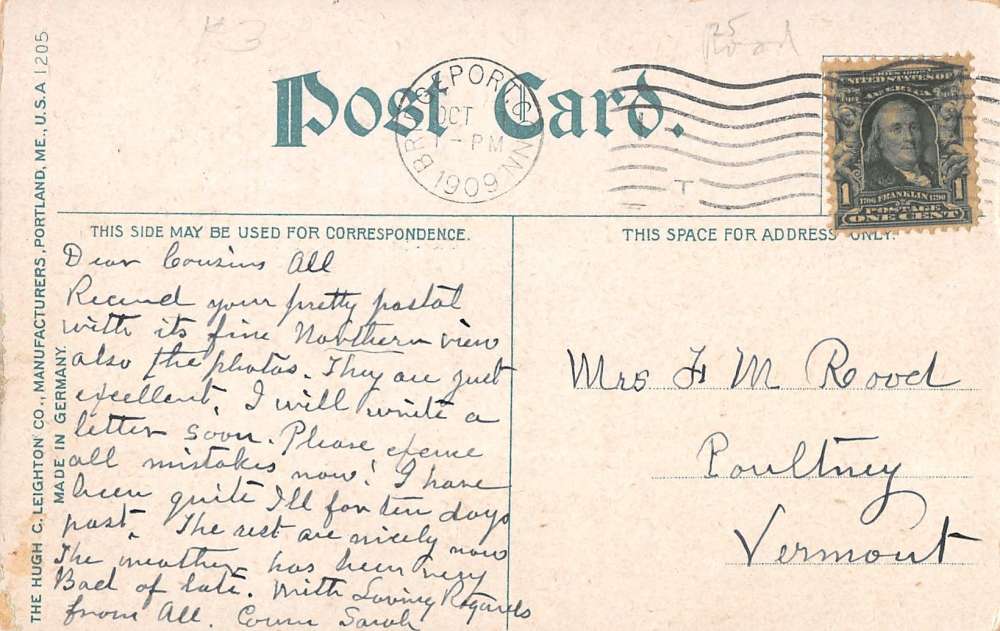 THE HUGH C. LEIGHTON CO., MANUFACTURERS, PORTLAND, ME., U.S.A 1205
MADE IN GERMANY.
25
Post Card.
BRIDGEPORT, CONN.
OCT
1 - PM
1909
T
UNITED STATES OF
AMERICA
1 1706 FRANKLIN 1790 1
POSTAGE
ONE CENT
THIS SIDE MAY BE USED FOR CORRESPONDENCE.
Dear Cousins All
Received your pretty postal
with its fine Northern view
also the photos. They are just
excellent, I will write a
letter soon. Please excuse
all mistakes now! I have
been quite Ill for ten days
past. The rest are nicely now
The weather has been very
Bad of late. With Loving Regards
from All. Cousin Sarah
THIS SPACE FOR ADDRESS ONLY.
Mrs F M Rood
Poultney
Vermont